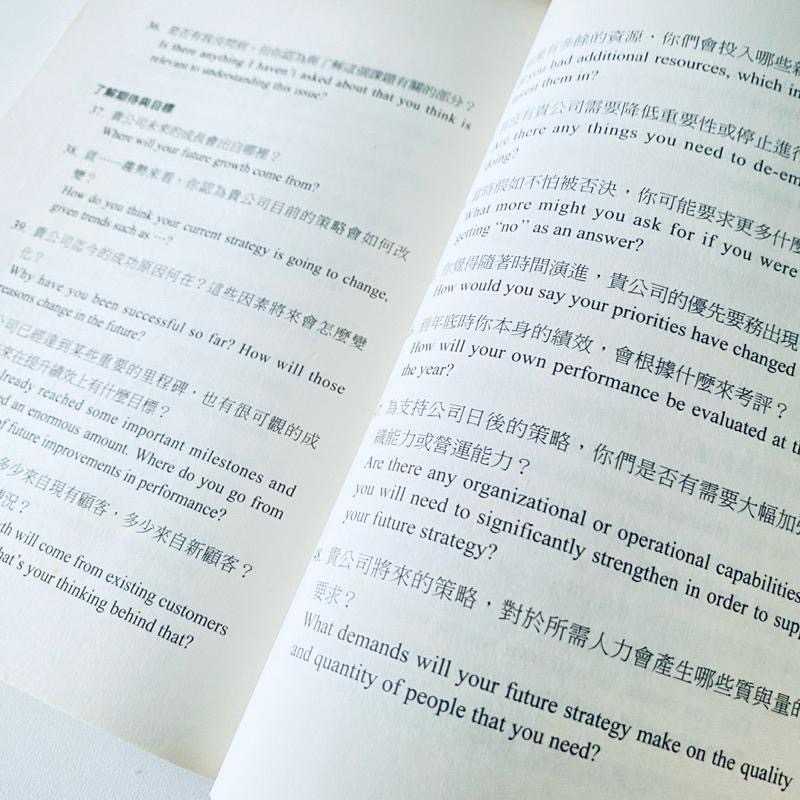 36. 是否有我沒問到,但你認為與了解這個課題有關的部分?
Is there anything I haven't asked about that you think is
relevant to understanding this issue?
了解期待與目標
37. 貴公司未來的成長會出自哪裡?
Where will your future growth come from?
38. 從⋯⋯趨勢來看,你認為貴公司目前的策略會如何改
變?
How do you think your current strategy is going to change,
given trends such as …?
39. 貴公司迄今的成功原因何在?這些因素將來會怎麼變
化?
Why have you been successful so far? How will those
reasons change in the future?
公司已經達到某些重要的里程碑,也有很可觀的成
來在提升績效上有什麼目標?
already reached some important milestones and
ed an enormous amount. Where do you go from
of future improvements in performance?
多少來自現有顧客,多少來自新顧客?
情況?
th will come from existing customers
hat's your thinking behind that?
有多餘的資源,你們會投入哪些新
you had additional resources, which in
invest them in?
有沒有貴公司需要降低重要性或停止進行
Are there any things you need to de-em
doing?
當時假如不怕被否決,你可能要求更多什麼
What more might you ask for if you were
getting "no" as an answer?
你覺得隨著時間演進,貴公司的優先要務出現
How would you say your priorities have changed
到年底時你本身的績效,會根據什麼來考評?
How will your own performance be evaluated at th
the year?
為支持公司日後的策略,你們是否有需要大幅加強
織能力或營運能力?
Are there any organizational or operational capabilities
you will need to significantly strengthen in order to supp
your future strategy?
8. 貴公司將來的策略,對於所需人力會產生哪些質與量的
要求?
What demands will your future strategy make on the quality
and quantity of people that you need?